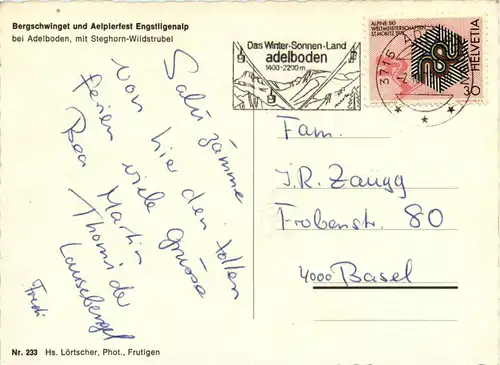 Bergschwinget und Aelplerfest Engstligenalp
bei Adelboden, mit Steghorn-Wildstrubel
Salü zämme
von hier den tollen
Ferien viele Grüsse
Bea Martin
Thomi der
Lausebengel
Fredi
Das Winter-Sonnen-Land
adelboden
1400-2200m
3715 A
ALPINE SKI
WELTMEISTERSCHAFTEN
ST. MORITZ 1974
HELVETIA
30
Fam.
J.R. Zaugg
Frobenstr. 80
4000 Basel
Nr. 233 Hs. Lörtscher, Phot., Frutigen